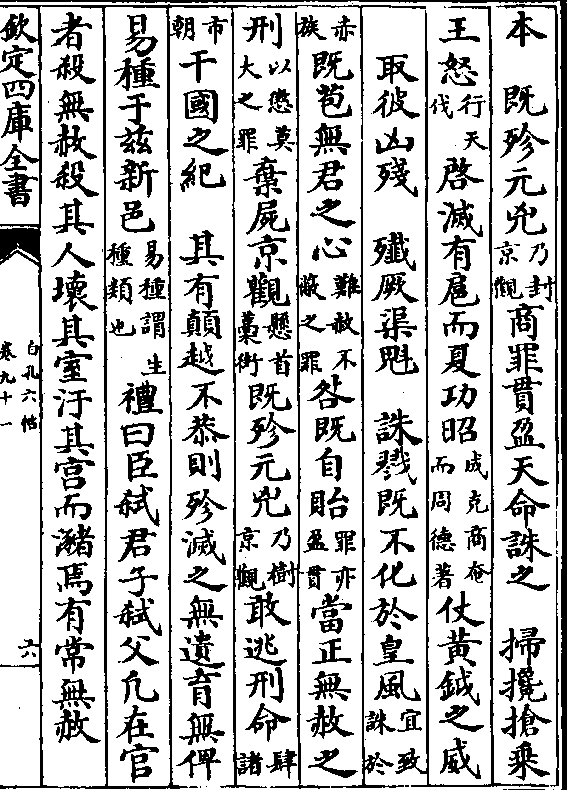 本　既殄元兇乃封京觀商罪貫盈天命誅之　掃攙搶乘
王怒行天伐啓滅有扈而夏功昭成克商奄而周德著仗黄鉞之威
取彼凶殘　殲厥渠魁　誅戮既不化於皇風宜致誅於
赤族既苞無君之心難赦不蔽之罪咎既自貽罪亦盈貫當正無赦之
刑以懲莫大之罪棄屍京觀懸首藁街既殄元兇乃樹京觀敢逃刑命肆諸
市朝干國之紀　其有顛越不恭則殄滅之無遺育無俾
易種于兹新邑易種謂生種類也禮曰臣弑君子弑父凡在官
者殺無赦殺其人壞其室汙其宫而瀦焉有常無赦
欽定四庫全書
白孔六帖
卷九十一
六